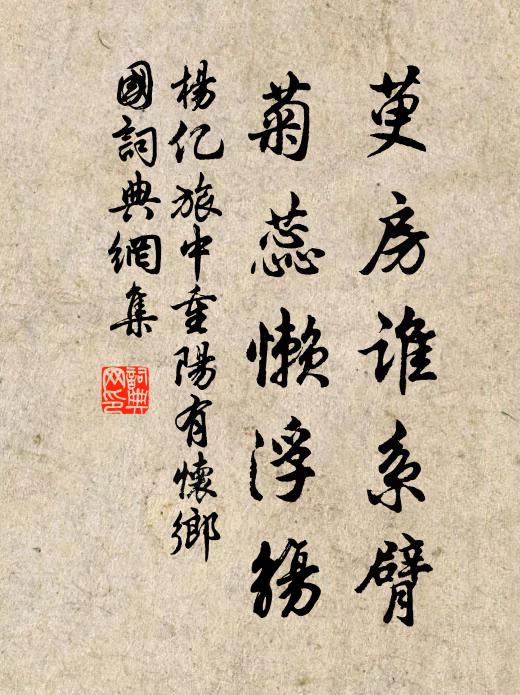 萸房誰系臂
菊蕊懶浮觴
楊亿旅中重陽有懷鄉
國詞典網集
詞典
网印